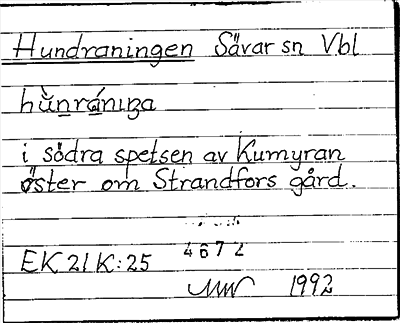 Hundraningen Sävar sn Vbl
hùnrániŋa
i södra spetsen av Kumyran
öster om Strandfors gård.
4672
EK 21 K:25
1992